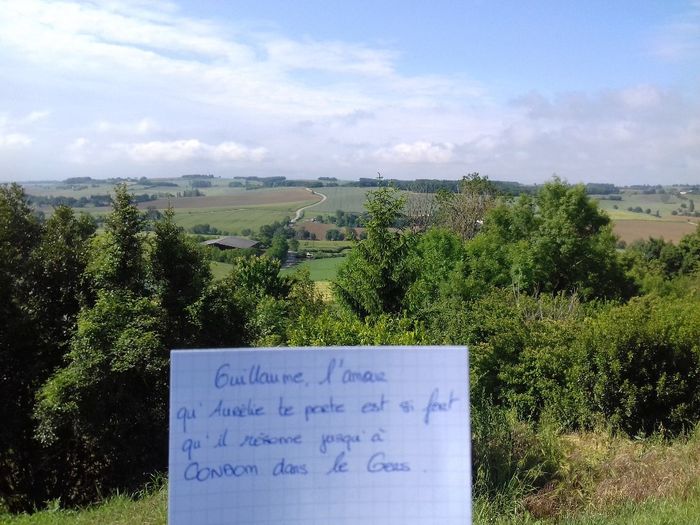 Guillaume, l'amour
qu'Aurélie te porte est si fort
qu'il résonne jusqu'à
CONDOM dans le Gers.